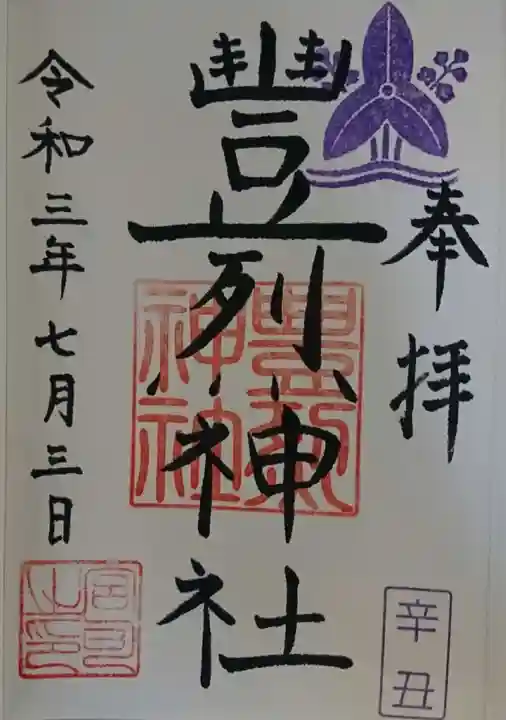 奉拝
豊烈神社
豊烈神社
令和三年七月三日
宮司之印
辛丑